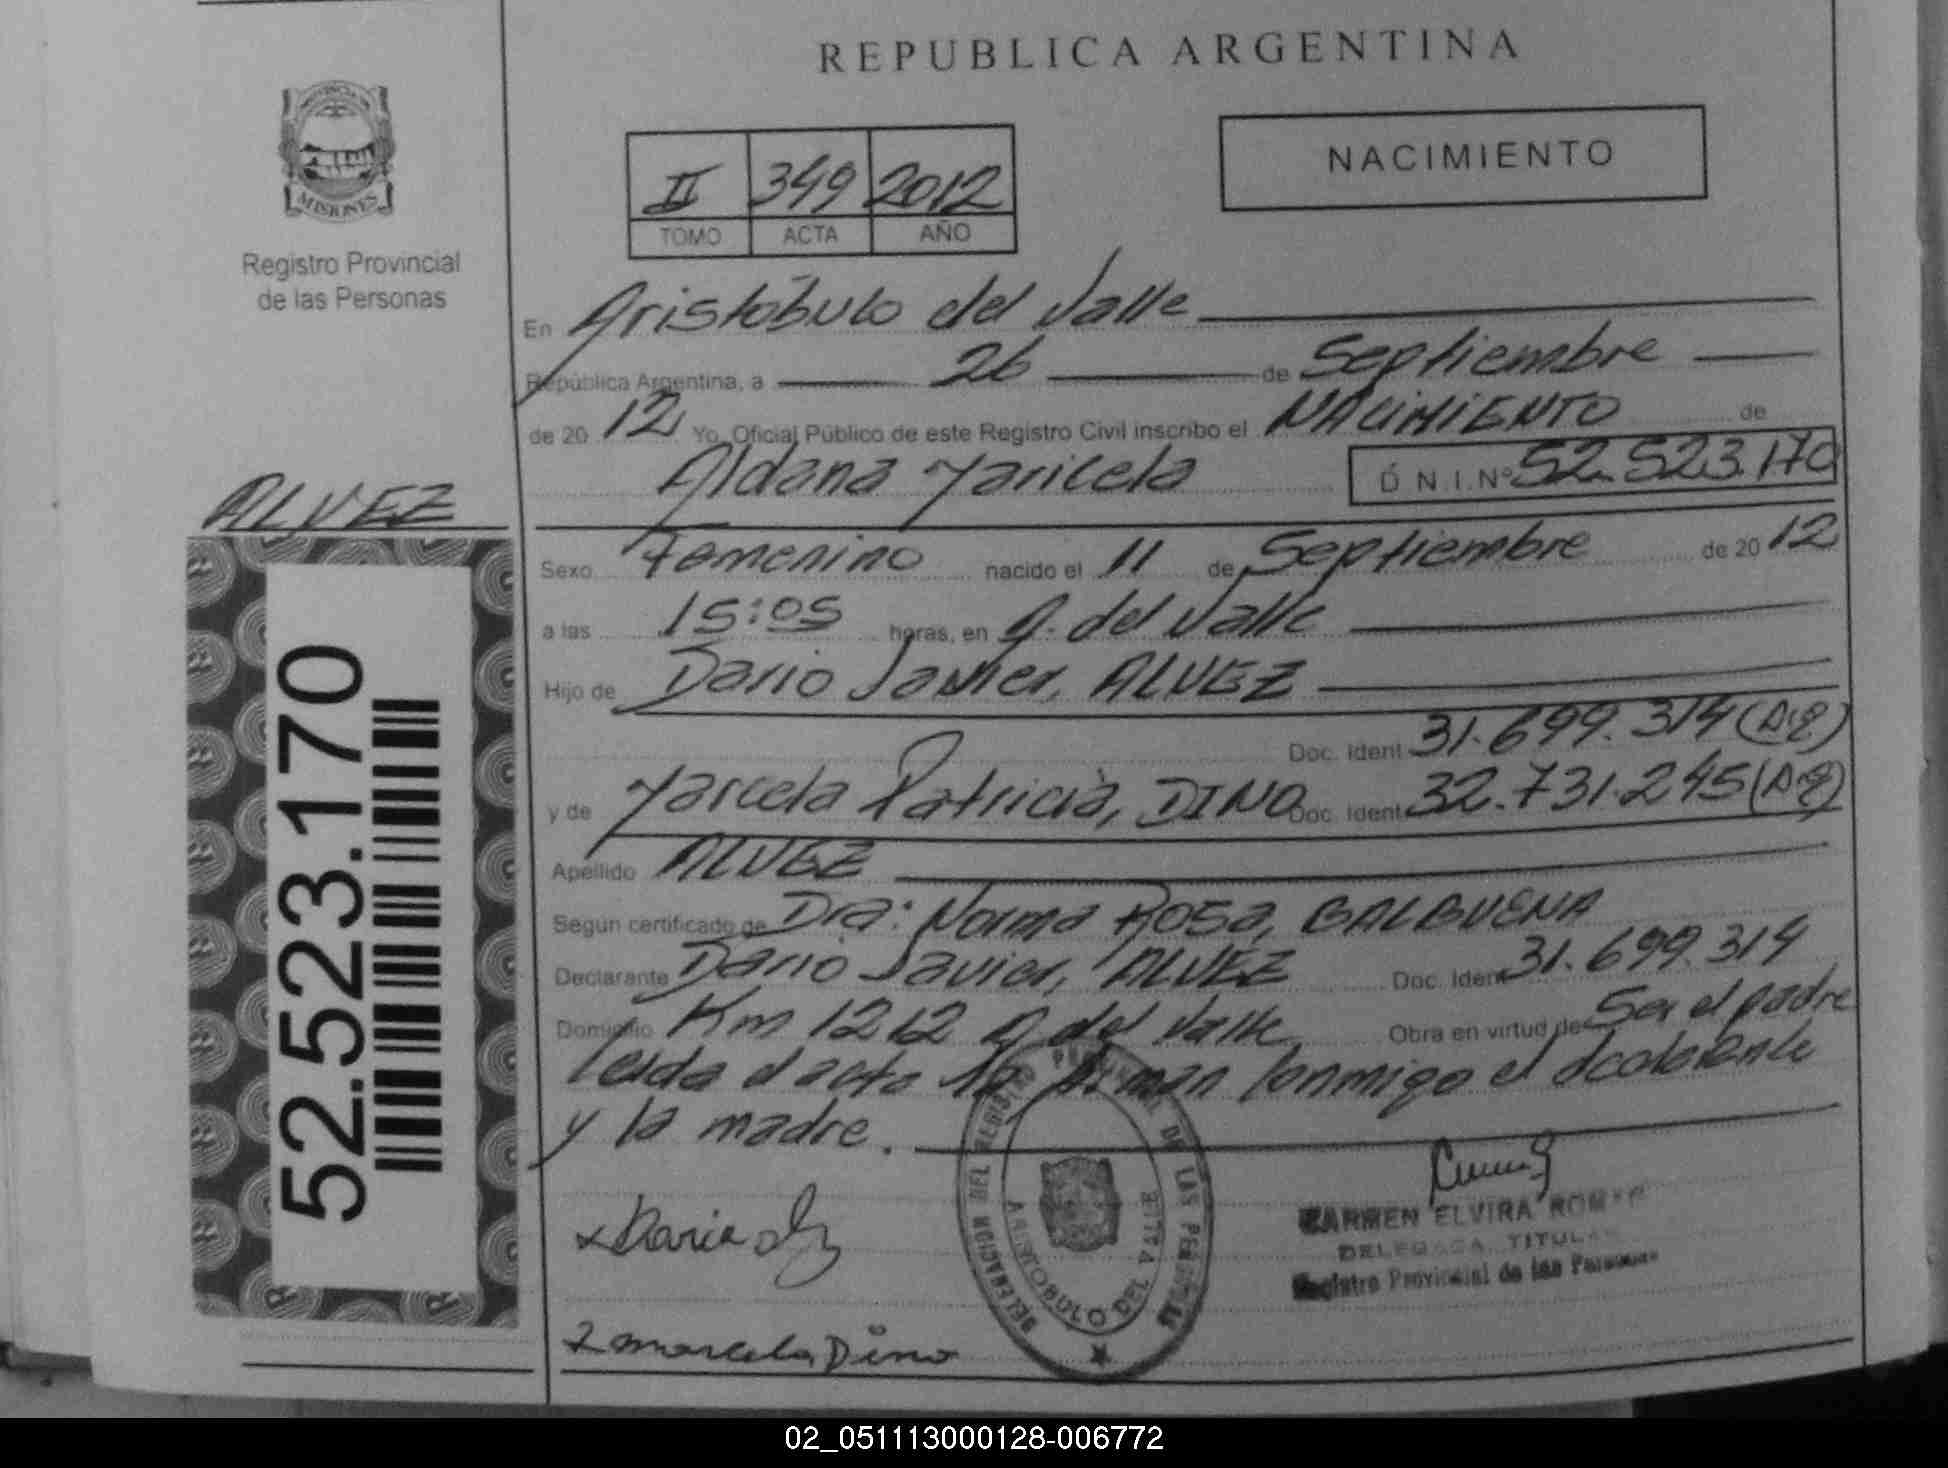 REPUBLICA ARGENTINA
PROVINCIA DE
MISIONES
Registro Provincial
de las Personas
II 349 2012
TOMO ACTA AÑO
NACIMIENTO
En Aristóbulo del Valle
República Argentina, a 26 de Septiembre
de 20 12 Yo, Oficial Público de este Registro Civil inscribo el NACIMIENTO de
Aldana Maricela D.N.I.Nº 52.523.170
ALVEZ
52.523.170
Sexo Femenino nacido el 11 de Septiembre de 20 12
a las 15:05 horas, en A. del Valle
Hijo de Dario Javier, ALVEZ
Doc. Ident 31.699.314 (Arg)
y de Marcela Patricia, DINO Doc. Ident 32.731.245 (Arg)
Apellido ALVEZ
Según certificado de Dra: Norma Rosa, BALBUENA
Declarante Dario Javier, ALVEZ Doc. Ident 31.699.314
Domicilio Km 1262 A. del Valle Obra en virtud de Ser el padre
Leida el acta la firman conmigo el declarante
y la madre.
DELEGACION DEL REGISTRO PROVINCIAL DE LAS PERSONAS
ARISTOBULO DEL VALLE
CARMEN ELVIRA
DELEGADA TITULAR
Registro Provincial de las Personas
x Dario
x Marcela Dino
02_051113000128-006772